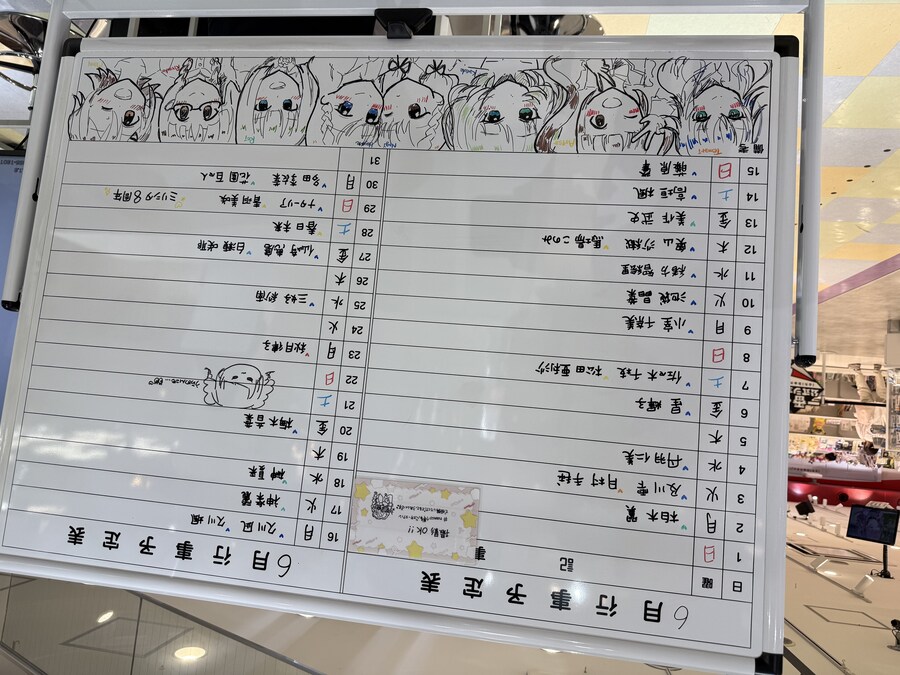 6月行事予定表
日 曜 記 事
1 日
2 月 柏木 翼
3 火 及川 雫 月村手毬
4 水 丹羽仁美
5 木
6 金 星 輝子
7 土 佐々木千枝 松田亜利沙
8 日
9 月 小室千奈美
10 火 池袋晶葉
11 水 緒方智絵里
12 木 奥山沙織 馬場このみ
13 金
14 土 高垣楓
15 日 藤原 肇
備考
撮影OK!!
6月行事予定表
16 月 久川 凪 久川 颯
17 火 神楽 麗
18 水 榊 夏来
19 木
20 金 梅木音葉
21 土
22 日
23 月 秋月律子
24 火
25 水 三好紗南
26 木
27 金 仙崎恵磨 白瀬咲耶
28 土 春日未来
29 日 ナターリア 青羽美咲 ミリシタ8周年
30 月 多田李衣菜 花園百々人
31